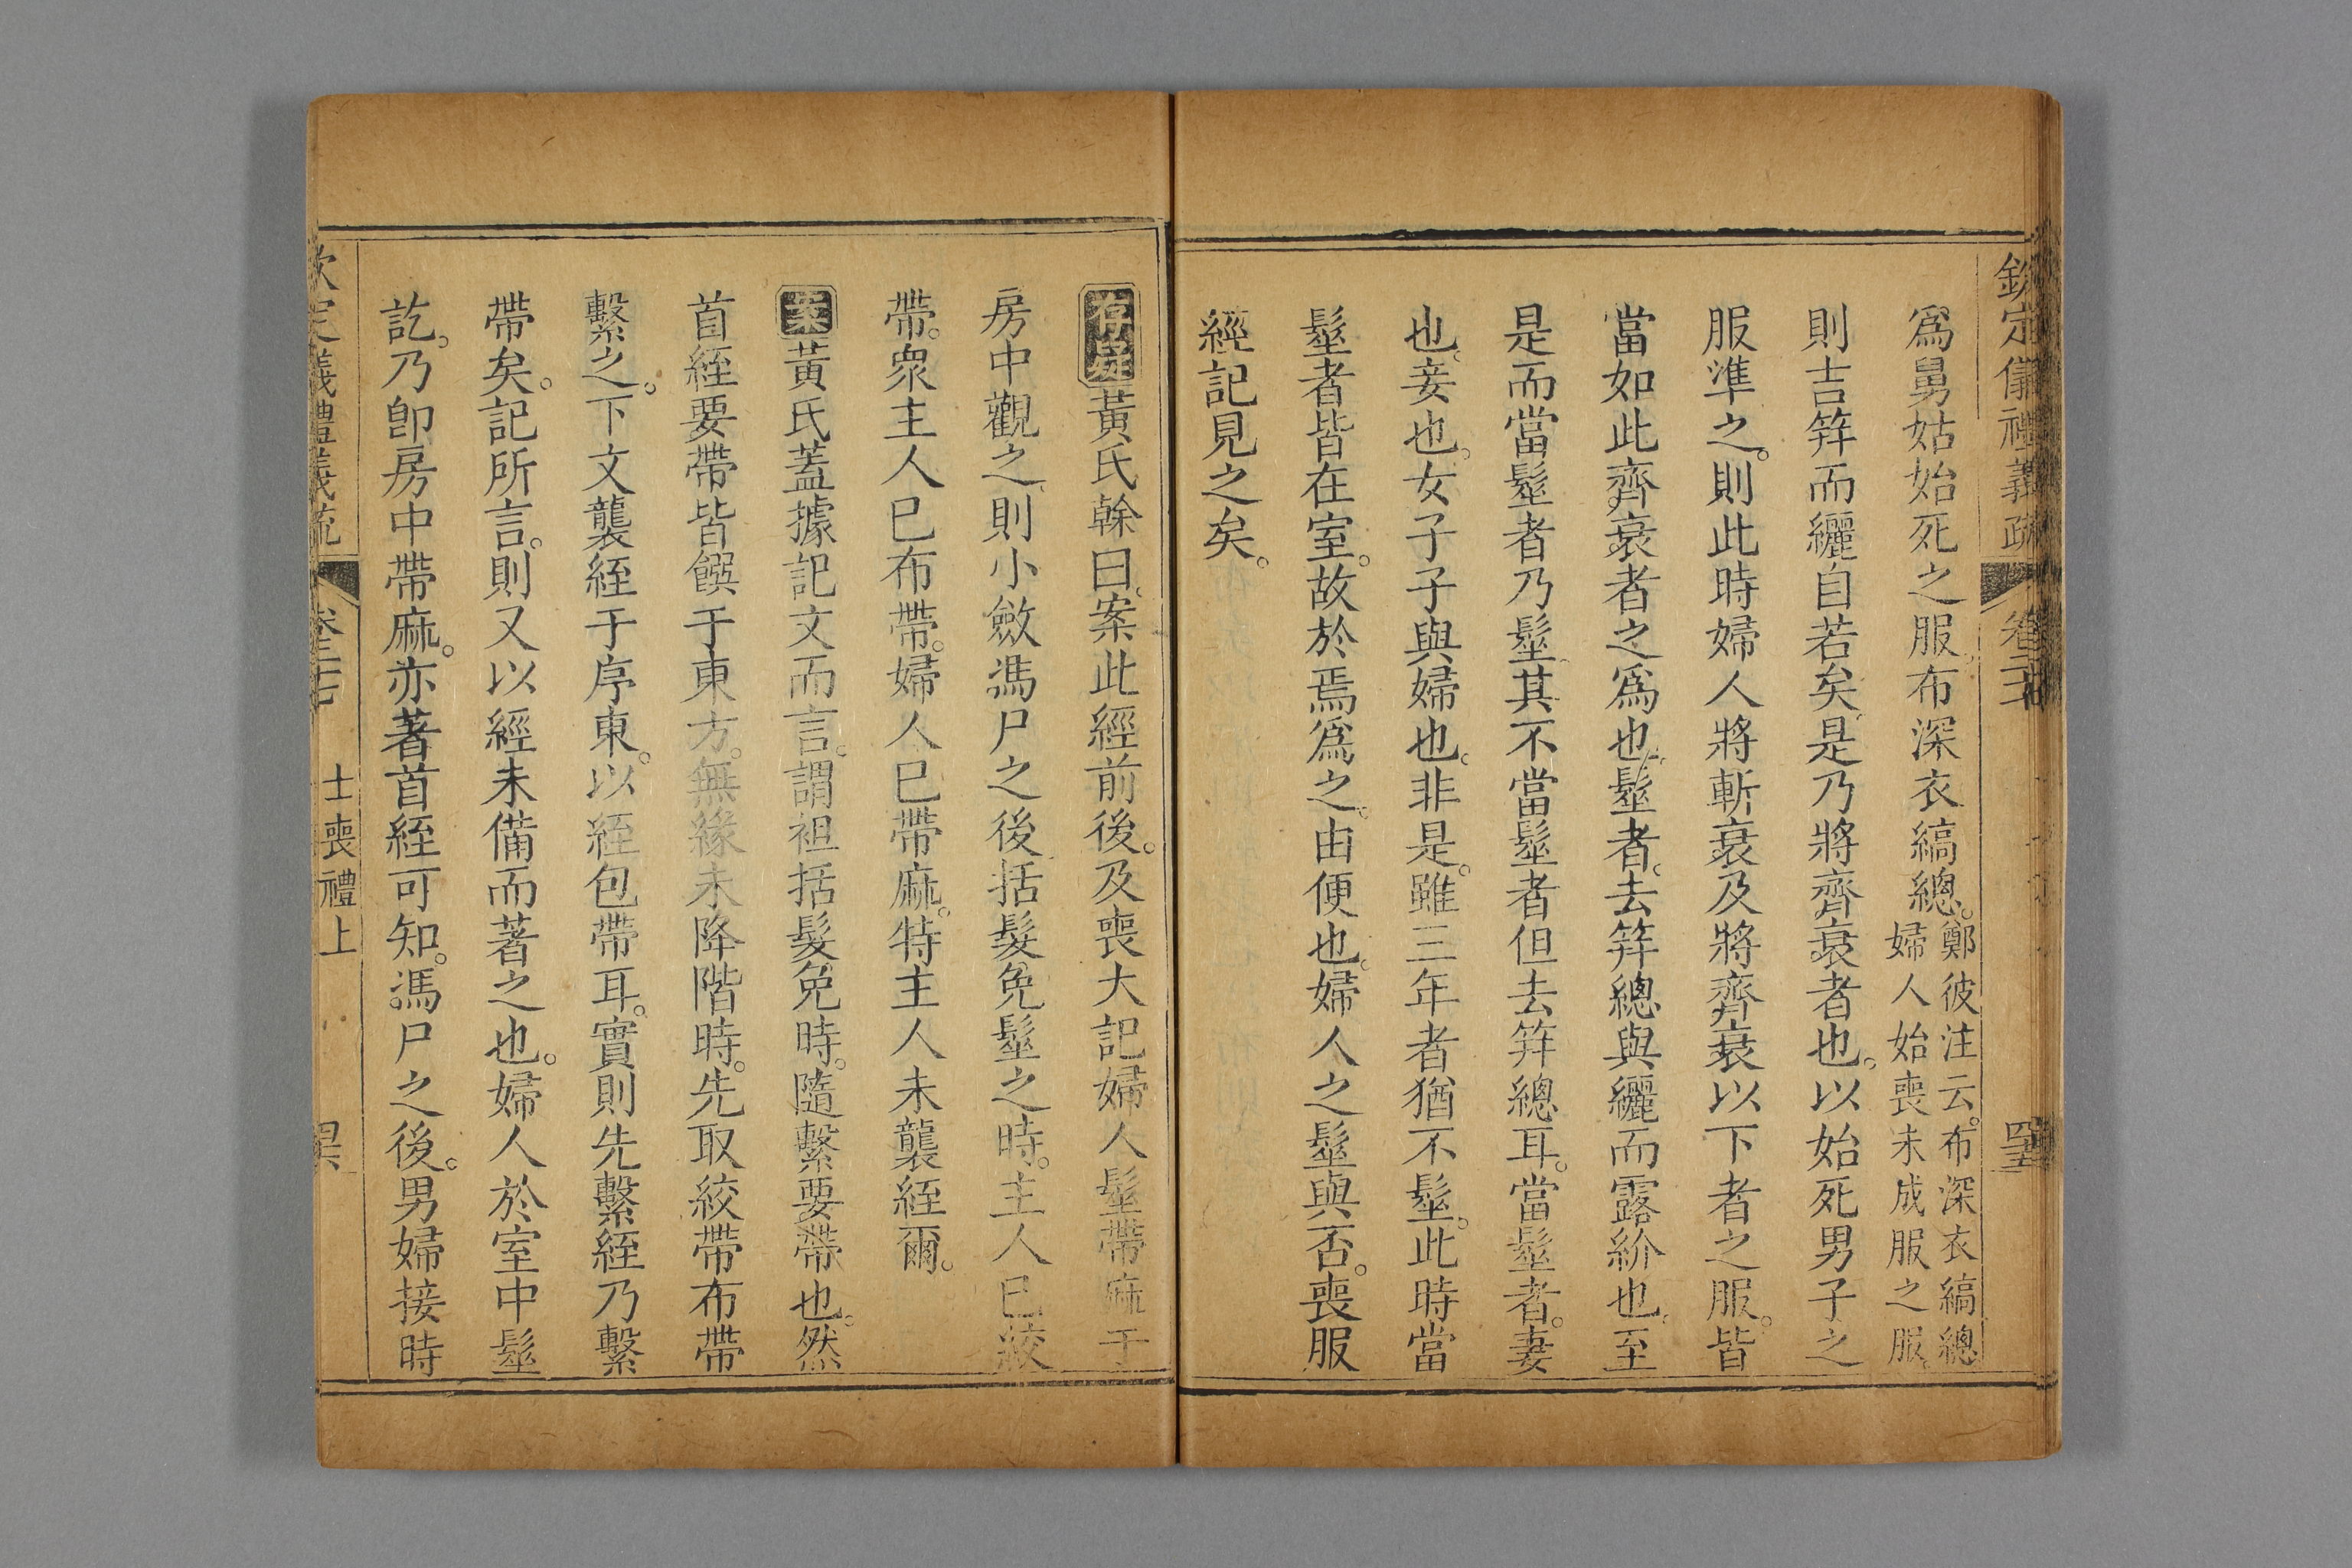 欽定儀禮義疏 卷二十七 四十五
爲舅姑始死之服。布深衣縞總。鄭彼注云。布深衣縞總
婦人始喪未成服之服。
則吉筓而纚自若矣。是乃將齊衰者也。以始死男子之
服準之。則此時婦人將斬衰及將齊衰以下者之服。皆
當如此齊衰者之爲也。髽者。去筓總與纚而露紒也。至
是而當髽者乃髽。其不當髽者但去筓總耳。當髽者。妻
也。妾也。女子子與婦也。非是。雖三年者猶不髽。此時當
髽者皆在室。故於焉爲之。由便也。婦人之髽與否。喪服
經記見之矣。
存疑黃氏榦曰。案此經前後。及喪大記婦人髽帶麻于
房中觀之。則小斂馮尸之後括髮免髽之時。主人已絞
帶。衆主人已布帶。婦人已帶麻。特主人未襲絰爾。
案黃氏蓋據記文而言。謂袒括髮免時。隨繫要帶也。然
首絰要帶皆饌于東方。無緣未降階時。先取絞帶布帶
繫之。下文襲絰于序東。以絰包帶耳。實則先繫絰乃繫
帶矣。記所言。則又以經未備而著之也。婦人於室中髽
訖。乃卽房中帶麻。亦著首絰可知。馮尸之後。男婦接時
欽定儀禮義疏 卷二十七 士喪禮上